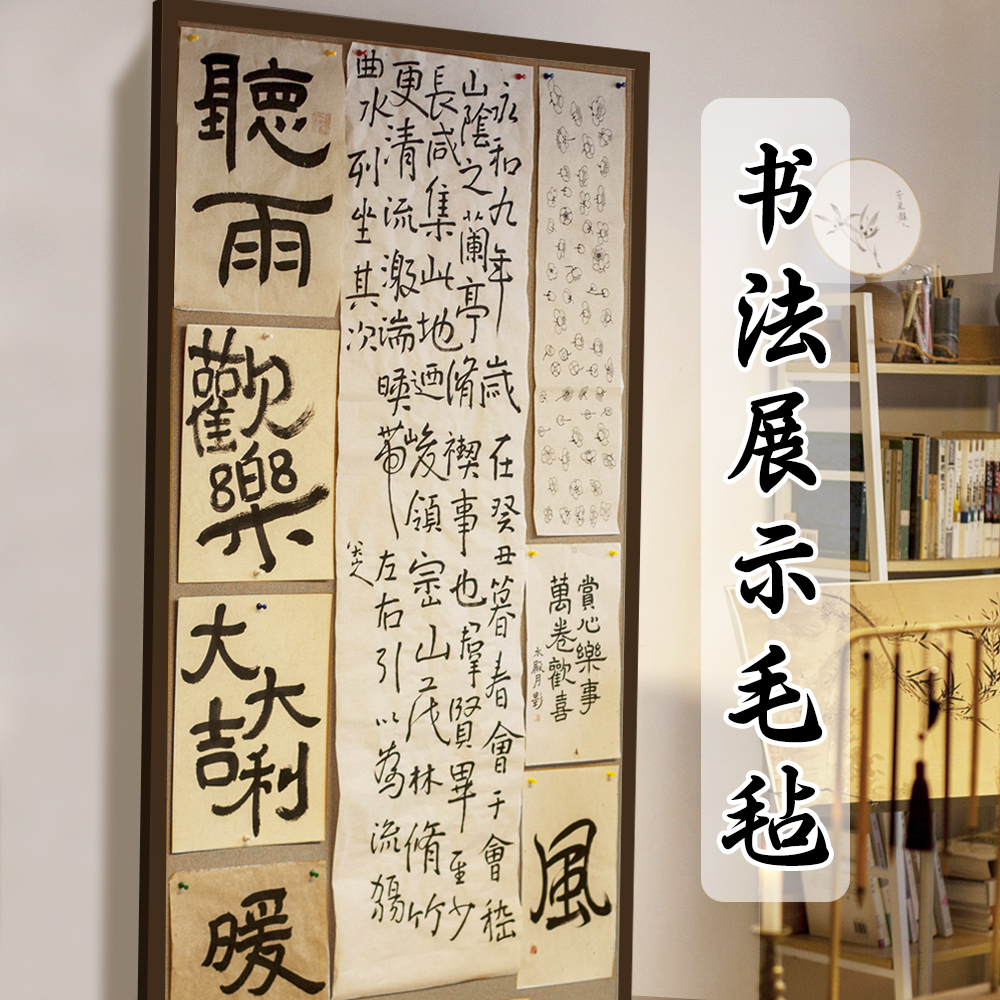 聽雨
歡樂
大吉
大利
暖
永和九年歲在癸丑暮春會于會稽
山陰之蘭亭脩禊事也羣賢畢至少
長咸集此地迺峻領崇山茂林脩竹
更清流激湍暎帶左右引以為流觴
曲水列坐其次
賞心樂事
萬卷歡喜
水殿月影
風
书法展示毛毡